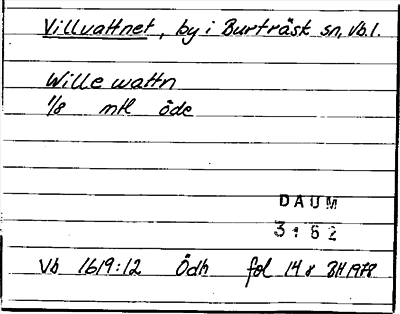 Villvattnet, by i Burträsk sn, Vb.l.
Wille wattn
1/8 mtl öde
DAUM
3162
Vb 1619:12 Ödh fol 14 r BH 1978